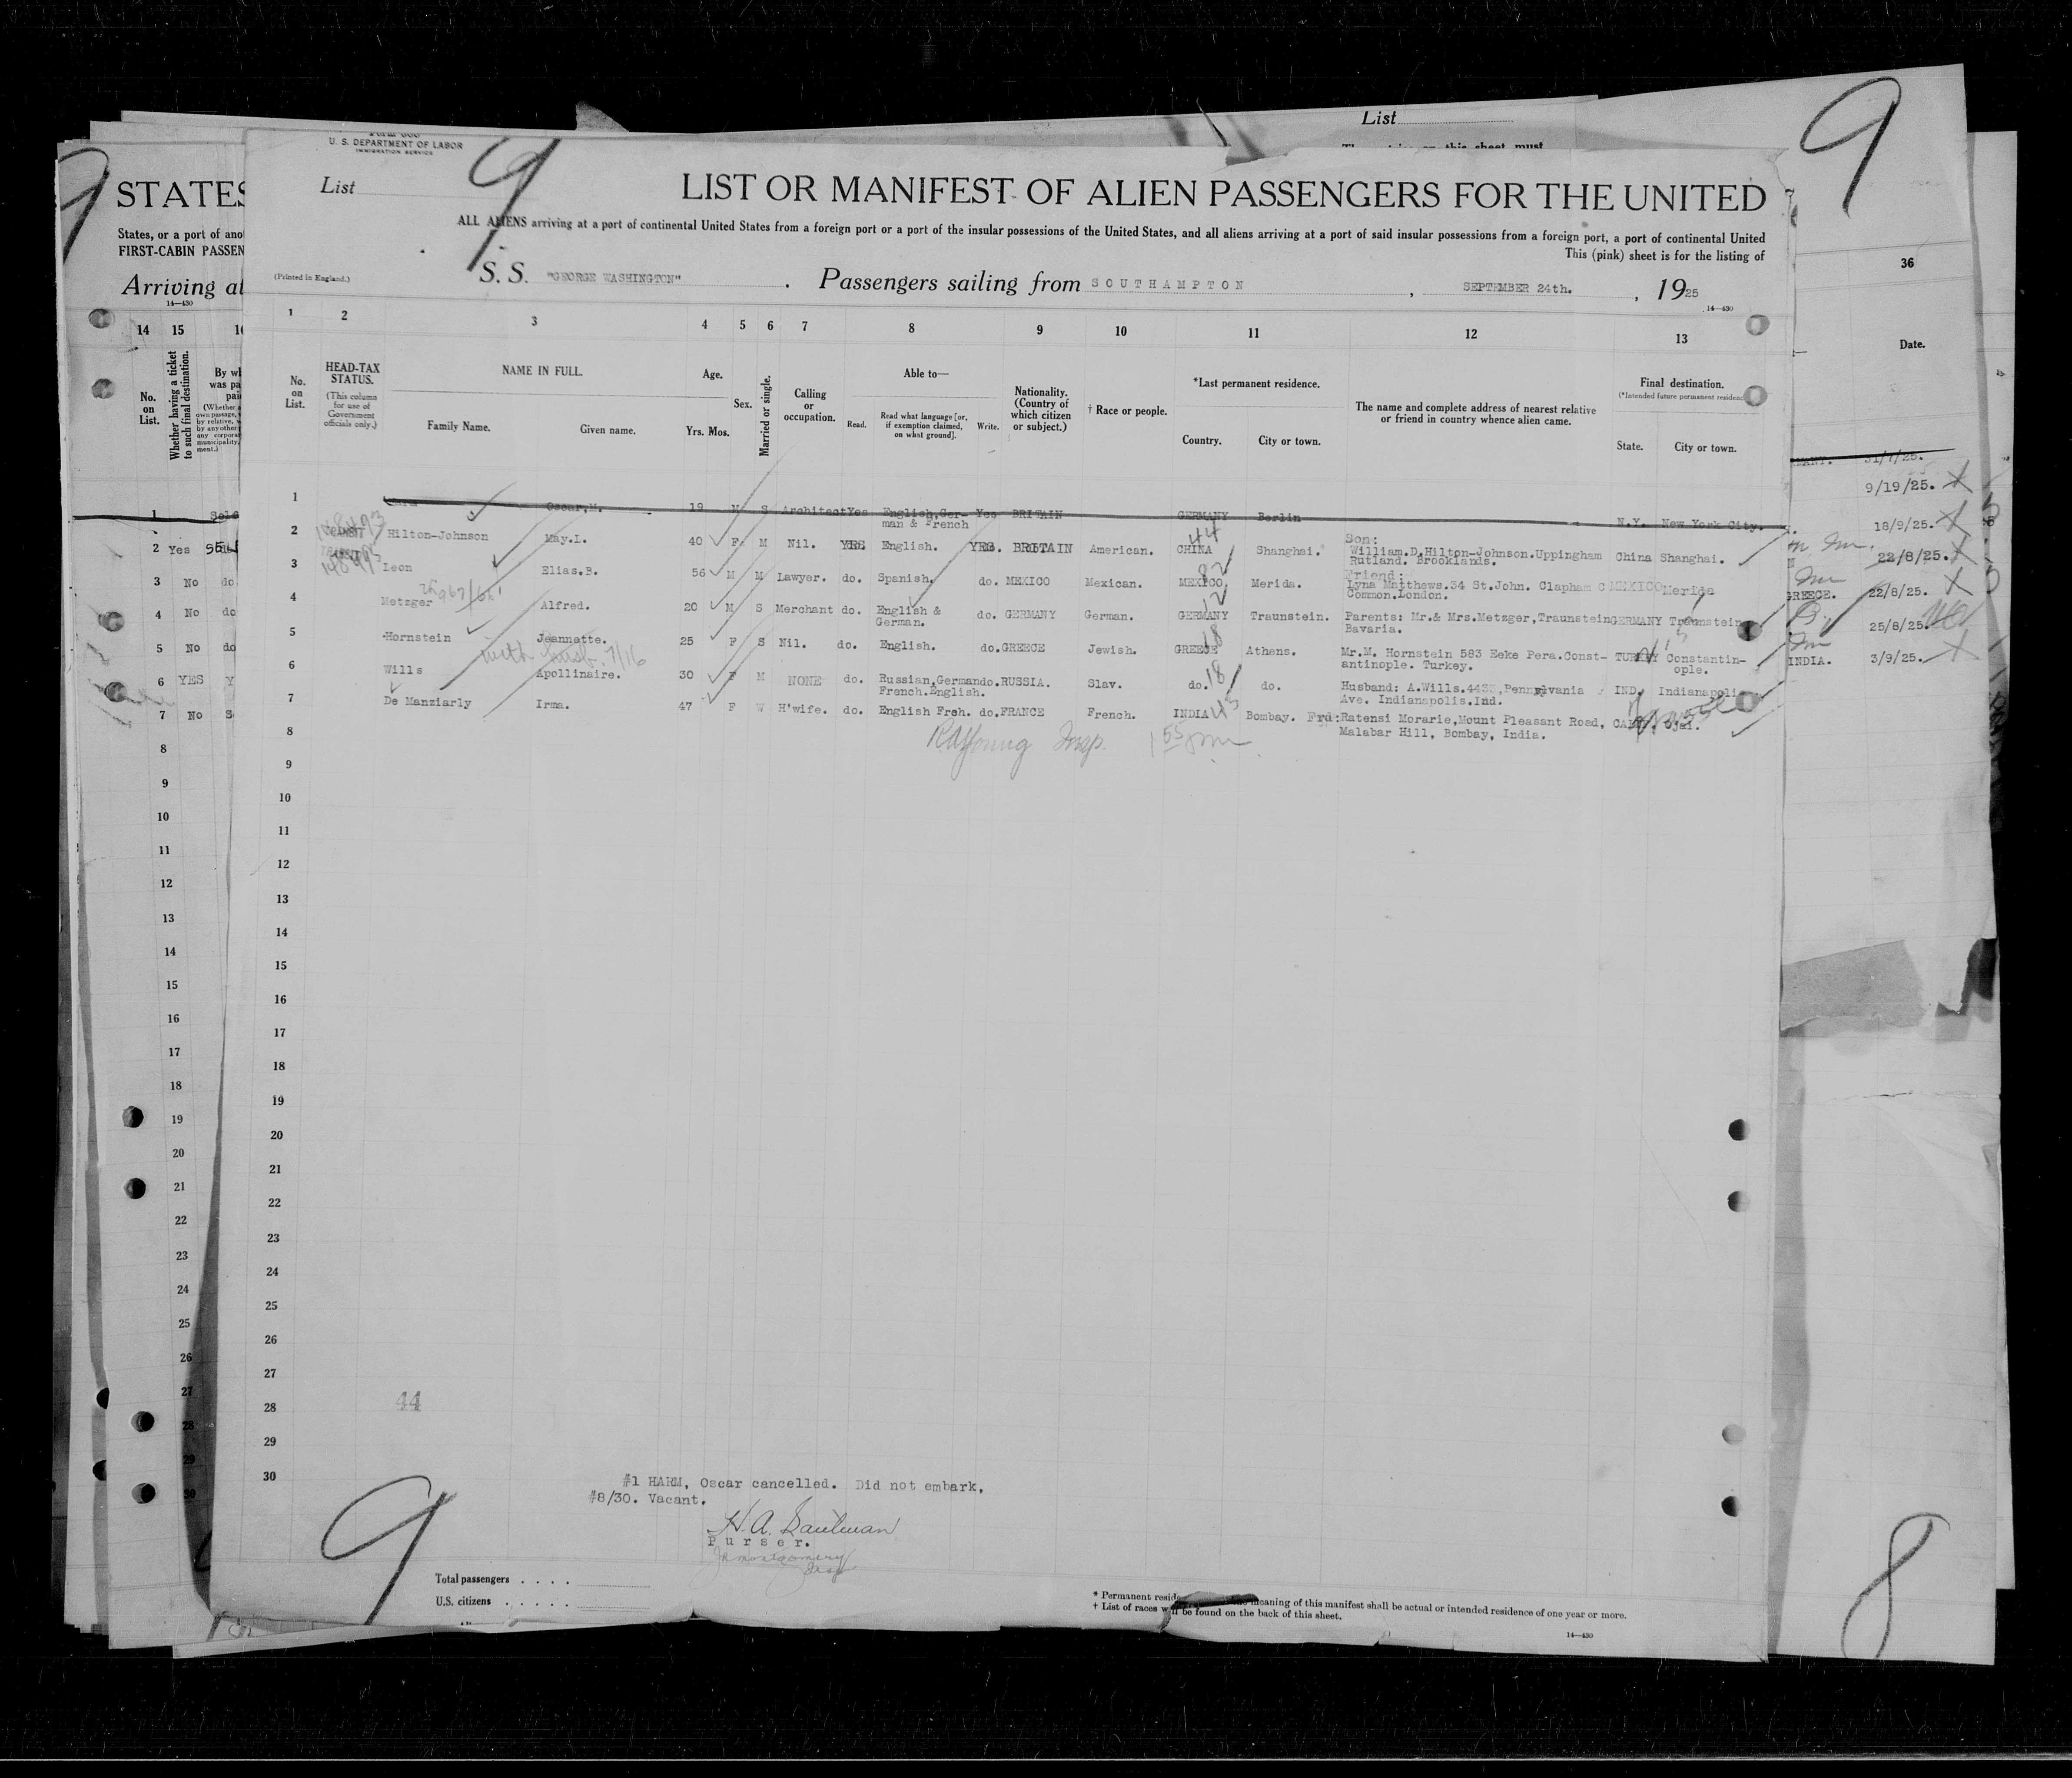 U. S. DEPARTMENT OF LABOR
IMMIGRATION SERVICE
List
9
LIST OR MANIFEST OF ALIEN PASSENGERS FOR THE UNITED
ALL ALIENS arriving at a port of continental United States from a foreign port or a port of the insular possessions of the United States, and all aliens arriving at a port of said insular possessions from a foreign port, a port of continental United
This (pink) sheet is for the listing of
(Printed in England.)
S. S. "GEORGE WASHINGTON" . Passengers sailing from SOUTHAMPTON , SEPTEMBER 24th. , 1925
14—430
1 2 3 4 5 6 7 8 9 10 11 12 13
No. on List.
HEAD-TAX STATUS.
(This column for use of Government officials only.)
NAME IN FULL.
Family Name. Given name.
Age.
Yrs. Mos.
Sex.
Married or single.
Calling or occupation.
Able to—
Read. Read what language [or, if exemption claimed, on what ground]. Write.
Nationality. (Country of which citizen or subject.)
† Race or people.
*Last permanent residence.
Country. City or town.
The name and complete address of nearest relative or friend in country whence alien came.
Final destination.
(*Intended future permanent residence
State. City or town.
1 Oscar,M. 19 M S Architect Yes English,Ger- Yes BRITAIN GERMANY Berlin N.Y. New York City.
man & French
2 Hilton-Johnson May.L. 40 F M Nil. YES English. YES. BRITAIN American. CHINA Shanghai. Son: William.D.Hilton-Johnson.Uppingham China Shanghai.
Rutland. Brooklands.
3 Leon Elias.B. 56 M M Lawyer. do. Spanish, do. MEXICO Mexican. MEXICO, Merida. Friend: Lyna Matthews.34 St.John. Clapham C MEXICO Merida
Common.London.
4 Metzger Alfred. 20 M S Merchant do. English & do. GERMANY German. GERMANY Traunstein. Parents: Mr.& Mrs.Metzger,Traunstein GERMANY Traunstein
German. Bavaria.
5 Hornstein Jeannette. 25 F S Nil. do. English. do. GREECE Jewish. GREECE Athens. Mr.M. Hornstein 583 Eeke Pera.Const- TURKEY Constantin-
antinople. Turkey. ople.
with husb. 7/16
6 Wills Apollinaire. 30 F M NONE do. Russian,German do. RUSSIA. Slav. do. do. Husband: A.Wills.443 ,Pennylvania IND. Indianapolis
French.English. Ave. Indianapolis.Ind.
7 De Manziarly Irma. 47 F W H'wife. do. English Frch. do. FRANCE French. INDIA Bombay. Frd: Ratensi Morarie,Mount Pleasant Road, Ojai.
Malabar Hill, Bombay, India.
8
9
10
11
12
13
14
15
16
17
18
19
20
21
22
23
24
25
26
27
28
29
30
44
#1 HARM, Oscar cancelled. Did not embark.
#8/30. Vacant.
Purser.
9
Total passengers . . . .
U.S. citizens . . . . .
* Permanent meaning of this manifest shall be actual or intended residence of one year or more.
† List of races will be found on the back of this sheet.
14—430
STATES
States, or a port of
FIRST-CABIN
Arriving at
14—430
14 15
No. on List.
Whether having a ticket to such final destination.
1
2 Yes
3 No do
4 No do
5 No do
6 YES Y
7 No S
8
9
10
11
12
13
14
15
16
17
18
19
20
21
22
23
24
25
26
27
28
29
30
List
9
36
Date.
31/7/25.
9/19/25.
18/9/25.
22/8/25.
GREECE. 22/8/25.
25/8/25.
INDIA. 3/9/25.
8